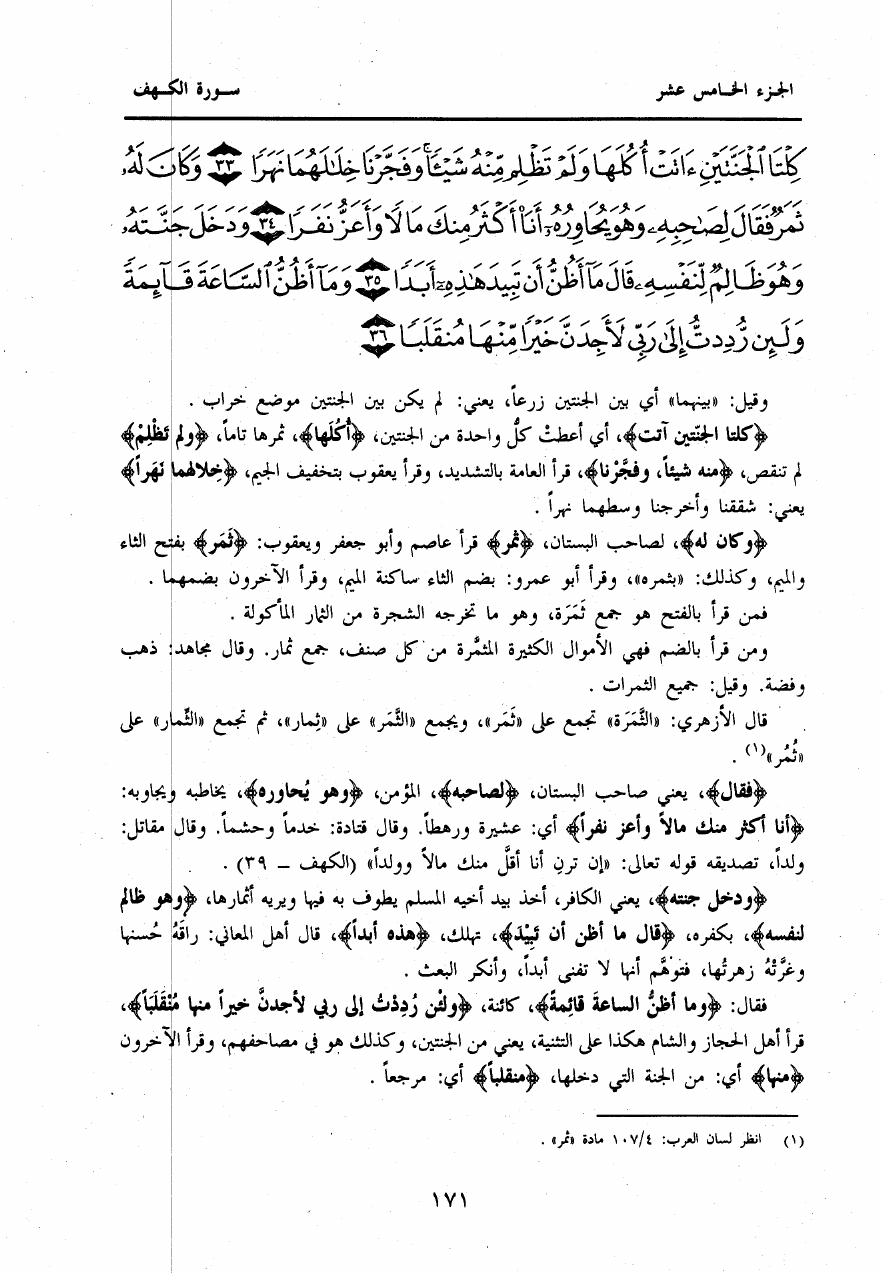 الجزء الخامس عشر
سورة الكهف
كِلْتَا ٱلْجَنَّتَيْنِ ءَاتَتْ أُكُلَهَا وَلَمْ تَظْلِم مِّنْهُ شَيْئًا ۚ وَفَجَّرْنَا خِلَـٰلَهُمَا نَهَرًا ﴿٣٣﴾ وَكَانَ لَهُۥ
ثَمَرٌ فَقَالَ لِصَـٰحِبِهِۦ وَهُوَ يُحَاوِرُهُۥٓ أَنَا۠ أَكْثَرُ مِنكَ مَالًا وَأَعَزُّ نَفَرًا ﴿٣٤﴾ وَدَخَلَ جَنَّتَهُۥ
وَهُوَ ظَالِمٌ لِّنَفْسِهِۦ قَالَ مَآ أَظُنُّ أَن تَبِيدَ هَـٰذِهِۦٓ أَبَدًا ﴿٣٥﴾ وَمَآ أَظُنُّ ٱلسَّاعَةَ قَآئِمَةً
وَلَئِن رُّدِدتُّ إِلَىٰ رَبِّى لَأَجِدَنَّ خَيْرًا مِّنْهَا مُنقَلَبًا ﴿٣٦﴾
وقيل: «بينهما» أي بين الجنتين زرعاً، يعني: لم يكن بين الجنتين موضع خراب .
﴿كلتا الجنّتين آتت﴾، أي أعطتْ كلُّ واحدة من الجنتين، ﴿أُكُلَها﴾، ثمرها تاماً، ﴿ولم تَظْلِمْ﴾
لم تنقص، ﴿منه شيئاً، وفجَّرْنا﴾، قرأ العامة بالتشديد، وقرأ يعقوب بتخفيف الجيم، ﴿خِلالهما نَهَراً﴾
يعني: شققنا وأخرجنا وسطهما نهراً .
﴿وكان له﴾، لصاحب البستان، ﴿ثمر﴾ قرأ عاصم وأبو جعفر ويعقوب: ﴿ثَمَر﴾ بفتح الثاء
والميم، وكذلك: «بثمره»، وقرأ أبو عمرو: بضم الثاء ساكنة الميم، وقرأ الآخرون بضمهما .
فمن قرأ بالفتح هو جمع ثَمَرَة، وهو ما تخرجه الشجرة من الثمار المأكولة .
ومن قرأ بالضم فهي الأموال الكثيرة المثمَّرة من كل صنف، جمع ثمار. وقال مجاهد: ذهب
وفضة. وقيل: جميع الثمرات .
قال الأزهري: «الثَّمَرَة» تجمع على «ثَمَر»، ويجمع «الثَّمَر» على «ثِمار»، ثم تجمع «الثِّمار» على
«ثُمُر»(١) .
﴿فقال﴾، يعني صاحب البستان، ﴿لصاحبه﴾، المؤمن، ﴿وهو يُحاوره﴾، يخاطبه ويجاوبه:
﴿أنا أكثر منك مالاً وأعز نفراً﴾ أي: عشيرة ورهطاً. وقال قتادة: خدماً وحشماً. وقال مقاتل:
ولداً، تصديقه قوله تعالى: «إن ترنِ أنا أقلَّ منك مالاً وولداً» (الكهف – ٣٩) .
﴿ودخل جنته﴾، يعني الكافر، أخذ بيد أخيه المسلم يطوف به فيها ويريه أثمارها، ﴿وهو ظالم
لنفسه﴾، بكفره، ﴿قال ما أظن أن تَبِيْدَ﴾، تهلك، ﴿هذه أبداً﴾، قال أهل المعاني: راقَهُ حُسنها
وغرَّتْهُ زهرتُها، فتوهَّم أنها لا تفنى أبداً، وأنكر البعث .
فقال: ﴿وما أظنُّ الساعةَ قائِمةً﴾، كائنة، ﴿ولئن رُدِدْتُ إلى ربي لأجدنَّ خيراً منها مُنْقَلَبَاً﴾،
قرأ أهل الحجاز والشام هكذا على التثنية، يعني من الجنتين، وكذلك هو في مصاحفهم، وقرأ الآخرون
﴿منها﴾ أي: من الجنة التي دخلها، ﴿منقلباً﴾ أي: مرجعاً .
(١) انظر لسان العرب: ١٠٧/٤ مادة «ثمر» .
١٧١